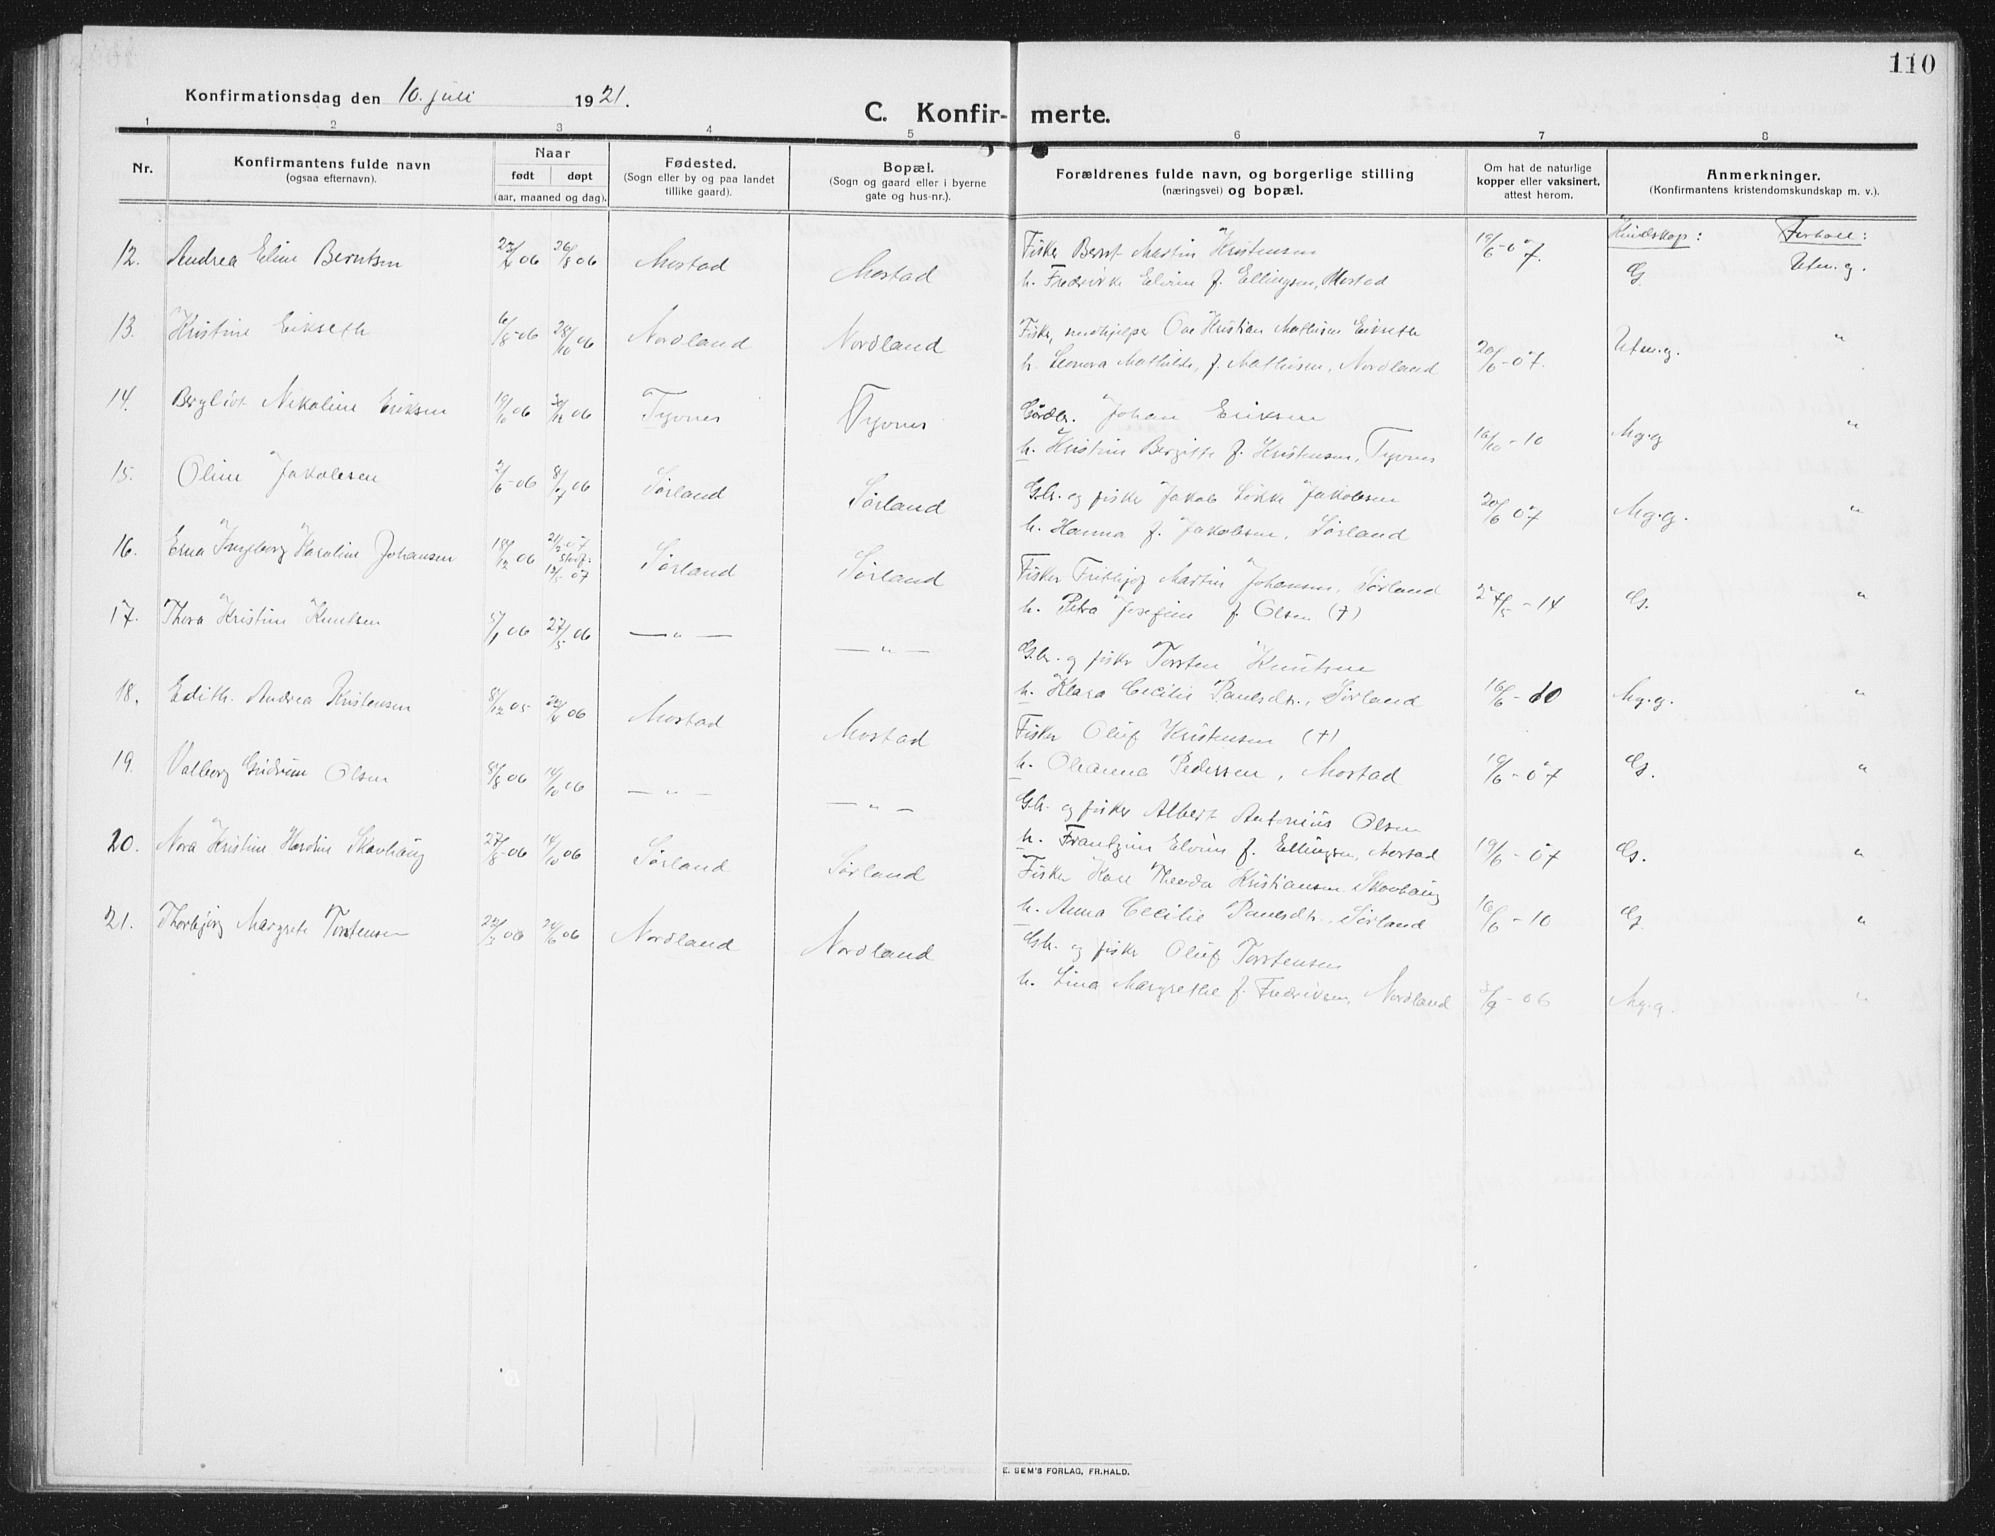 110
Konfirmationsdag den 10. juli 1921.
C. Konfirmerte.
1 2 3 4 5 6 7 8
Nr.
Konfirmantens fulde navn
(ogsaa efternavn).
Naar
født døpt
(aar, maaned og dag).
Fødested.
(Sogn eller by og paa landet
tillike gaard).
Bopæl.
(Sogn og gaard eller i byerne
gate og hus-nr.).
Forældrenes fulde navn, og borgerlige stilling
(næringsvei) og bopæl.
Om hat de naturlige
kopper eller vaksinert,
attest herom.
Anmerkninger.
(Konfirmantens kristendomskundskap m. v.).
Kundskap: Forhold:
12. Andrea Eline Berntsen 06 26/8 06 Mostad Mostad
Fisker Bernt Martin Kristensen
h. Fredrikke Elvine f. Ellingsen, Mostad
19/6-07. G. Utm.g.
13. Kristine Eikseth 6/8-06 28/10 06 Nordland Nordland
Fisker, Ove Kristian Mathisen Eikseth
h. Leonora Mathilde, f. Mathisen, Nordland
20/6-07. Utm.g. "
14. Bergliot Nikoline Eriksen 19/10 06 06 Tyvnes Tyvnes
Gårdbr. Johan Eriksen
h. Kristine Bergitte f. Kristensen, Tyvnes
16/10-10 M.g.g "
15. Oline Jakobsen 2/6-06 8/7 06 Sørland Sørland
Gbr. og fisker Jakob Løkke Jakobsen
h. Hanna f. Jakobsen, Sørland
20/6 07 M.g.g. "
16. Erna Ingeborg Karoline Johansen 18/12 06 21/2 07 12/5-07 Sørland Sørland
Fisker Frithjof Martin Johansen, Sørland
h. Petra Josefine f. Olsen (†)
27/5-14 G. "
17. Thora Kristine Knutsen 5/1 06 27/5 06 — " — — " —
Gbr. og fisker Torsten Knutsen
h. Klara Cecilie Paulsdtr., Sørland
16/6-10 M.g.g. "
18. Edith Andrea Kristensen 8/12 05 22/4 06 Mostad Mostad
Fisker Oluf Kristensen (†)
h. Ohanna Pedersen, Mostad
19/6-07 G. "
19. Valborg Gudrun Olsen 8/8 06 14/10 06 — " — — " —
Gbr. og fisker Albert Antonius Olsen
h. Frantzine Elvine f. Ellingsen, Mostad
19/6-07 G. "
20. Nora Kristine Hardine Skavhaug 27/8-06 14/10 06 Sørland Sørland
Fisker Karl Theodor Kristiansen Skavhaug
h. Anna Cecilie Paulsdtr., Sørland
16/6-10 G. "
21. Thorbjørg Margrete Torstensen 22/3 06 24/6 06 Nordland Nordland
Gbr. og fisker Oluf Torstensen
h. Lina Margrethe f. Fredriksen, Nordland
3/9-06 M.g.g. "
E. SEM'S FORLAG, FR.HALD.